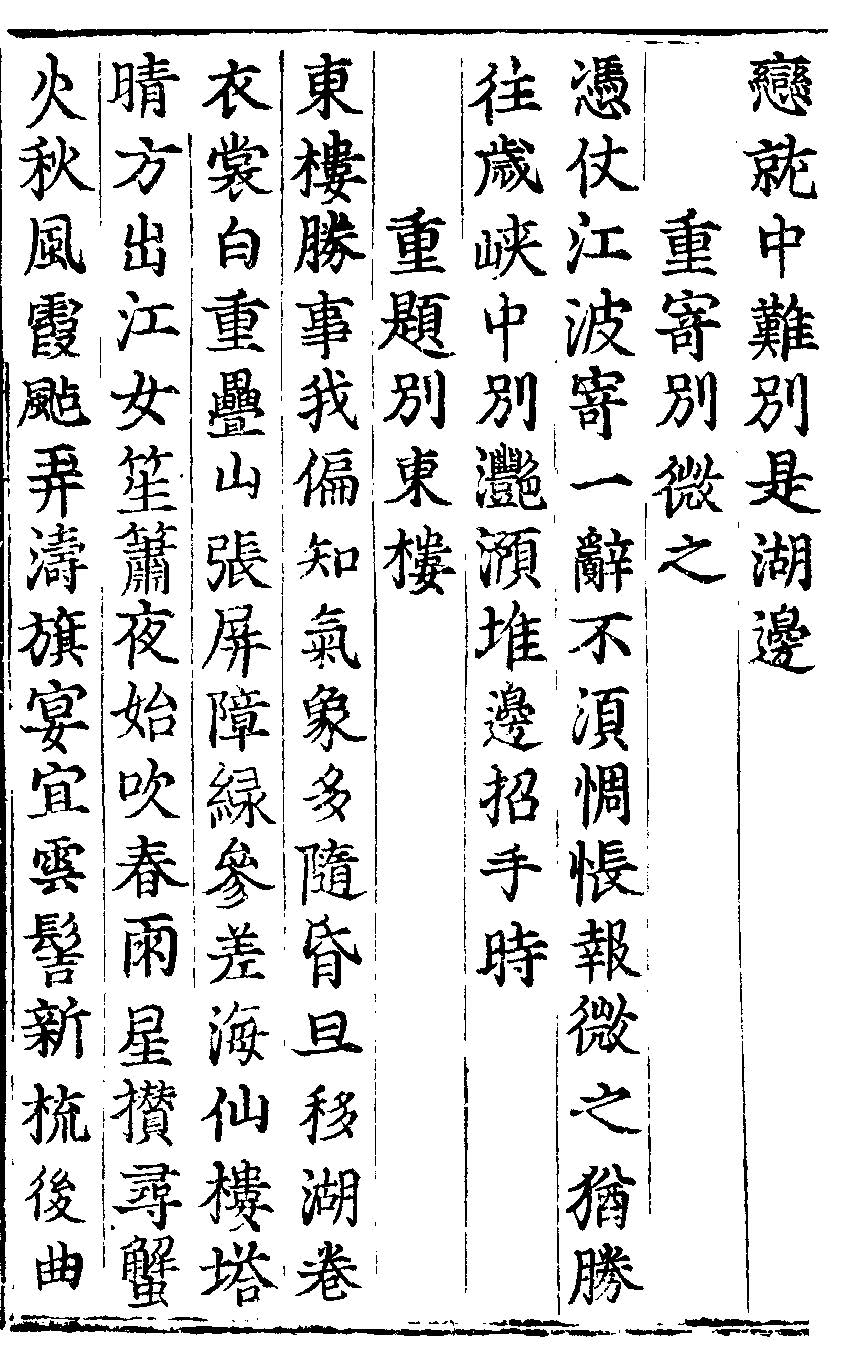 戀就中難別是湖邊
重寄別微之
憑仗江波寄一辭不須惆悵報微之猶勝
往歲峽中別灩澦堆邊招手時
重題別東樓
東樓勝事我偏知氣象多隨昏旦移湖卷
衣裳白重疊山張屏障緑參差海仙樓塔
晴方出江女笙簫夜始吹春雨星攅尋蟹
火秋風霞颭弄濤旗宴宜雲髻新梳後曲